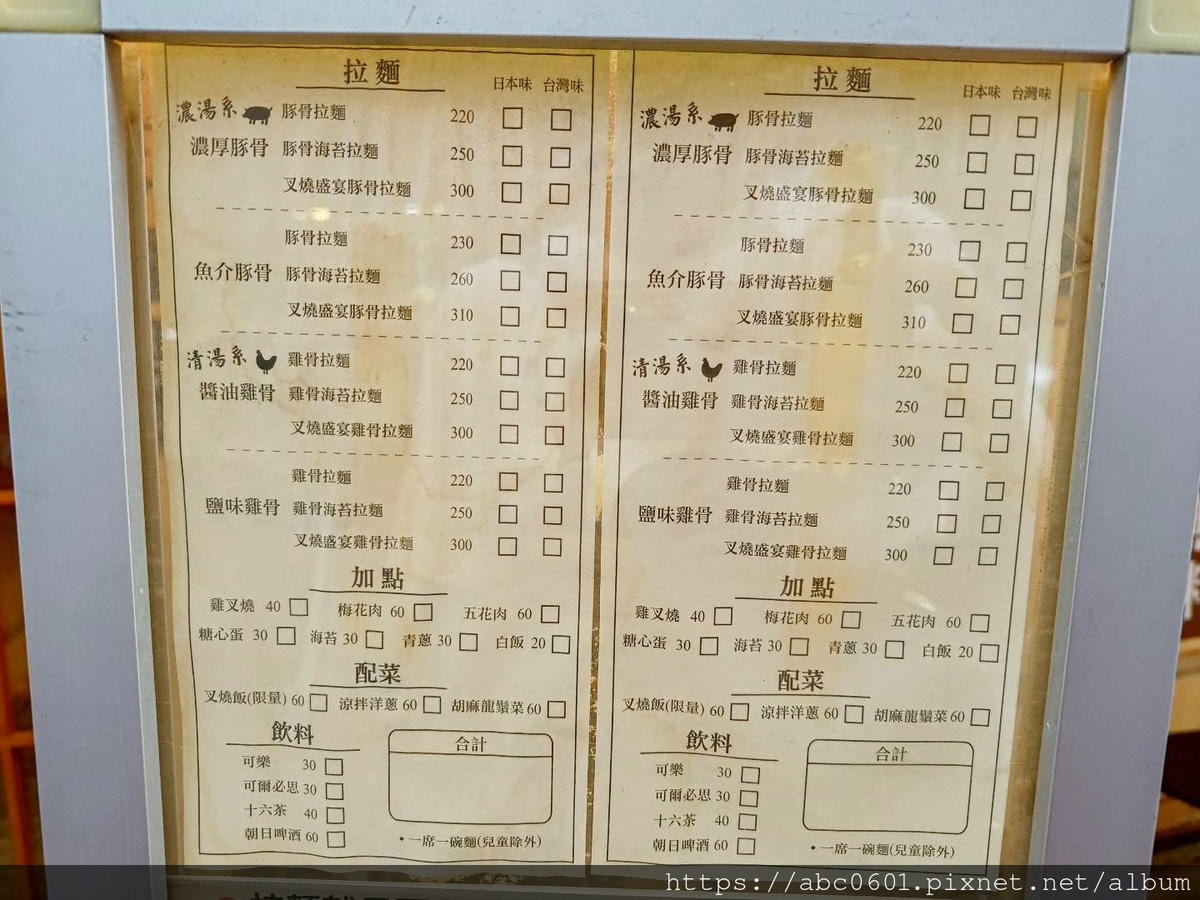 拉麵
日本味 台灣味
濃湯系 豚骨拉麵 220
濃厚豚骨 豚骨海苔拉麵 250
叉燒盛宴豚骨拉麵 300
豚骨拉麵 230
魚介豚骨 豚骨海苔拉麵 260
叉燒盛宴豚骨拉麵 310
清湯系 雞骨拉麵 220
醬油雞骨 雞骨海苔拉麵 250
叉燒盛宴雞骨拉麵 300
雞骨拉麵 220
鹽味雞骨 雞骨海苔拉麵 250
叉燒盛宴雞骨拉麵 300
加點
雞叉燒 40 梅花肉 60 五花肉 60
糖心蛋 30 海苔 30 青蔥 30 白飯 20
配菜
叉燒飯(限量) 60 涼拌洋蔥 60 胡麻龍鬚菜 60
飲料
合計
可樂 30
可爾必思 30
十六茶 40
朝日啤酒 60
•一席一碗麵(兒童除外)
拉麵
日本味 台灣味
濃湯系 豚骨拉麵 220
濃厚豚骨 豚骨海苔拉麵 250
叉燒盛宴豚骨拉麵 300
豚骨拉麵 230
魚介豚骨 豚骨海苔拉麵 260
叉燒盛宴豚骨拉麵 310
清湯系 雞骨拉麵 220
醬油雞骨 雞骨海苔拉麵 250
叉燒盛宴雞骨拉麵 300
雞骨拉麵 220
鹽味雞骨 雞骨海苔拉麵 250
叉燒盛宴雞骨拉麵 300
加點
雞叉燒 40 梅花肉 60 五花肉 60
糖心蛋 30 海苔 30 青蔥 30 白飯 20
配菜
叉燒飯(限量) 60 涼拌洋蔥 60 胡麻龍鬚菜 60
飲料
合計
可樂 30
可爾必思 30
十六茶 40
朝日啤酒 60
•一席一碗麵(兒童除外)
https://abc0601.pixnet.net/album